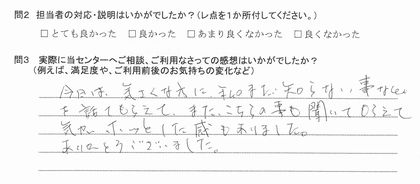 問2 担当者の対応・説明はいかがでしたか?(レ点を1か所付してください。)
□とても良かった □良かった □あまり良くなかった □良くなかった
問3 実際に当センターへご相談、ご利用なさっての感想はいかがでしたか?
(例えば、満足度や、ご利用前後のお気持ちの変化など)
今日は、気さくな方に、私のまだ知らない事など
を話してもらえて、また、こちらの事も聞いてもらえて
気が ホッとした感もありました。
ありがとうございました。